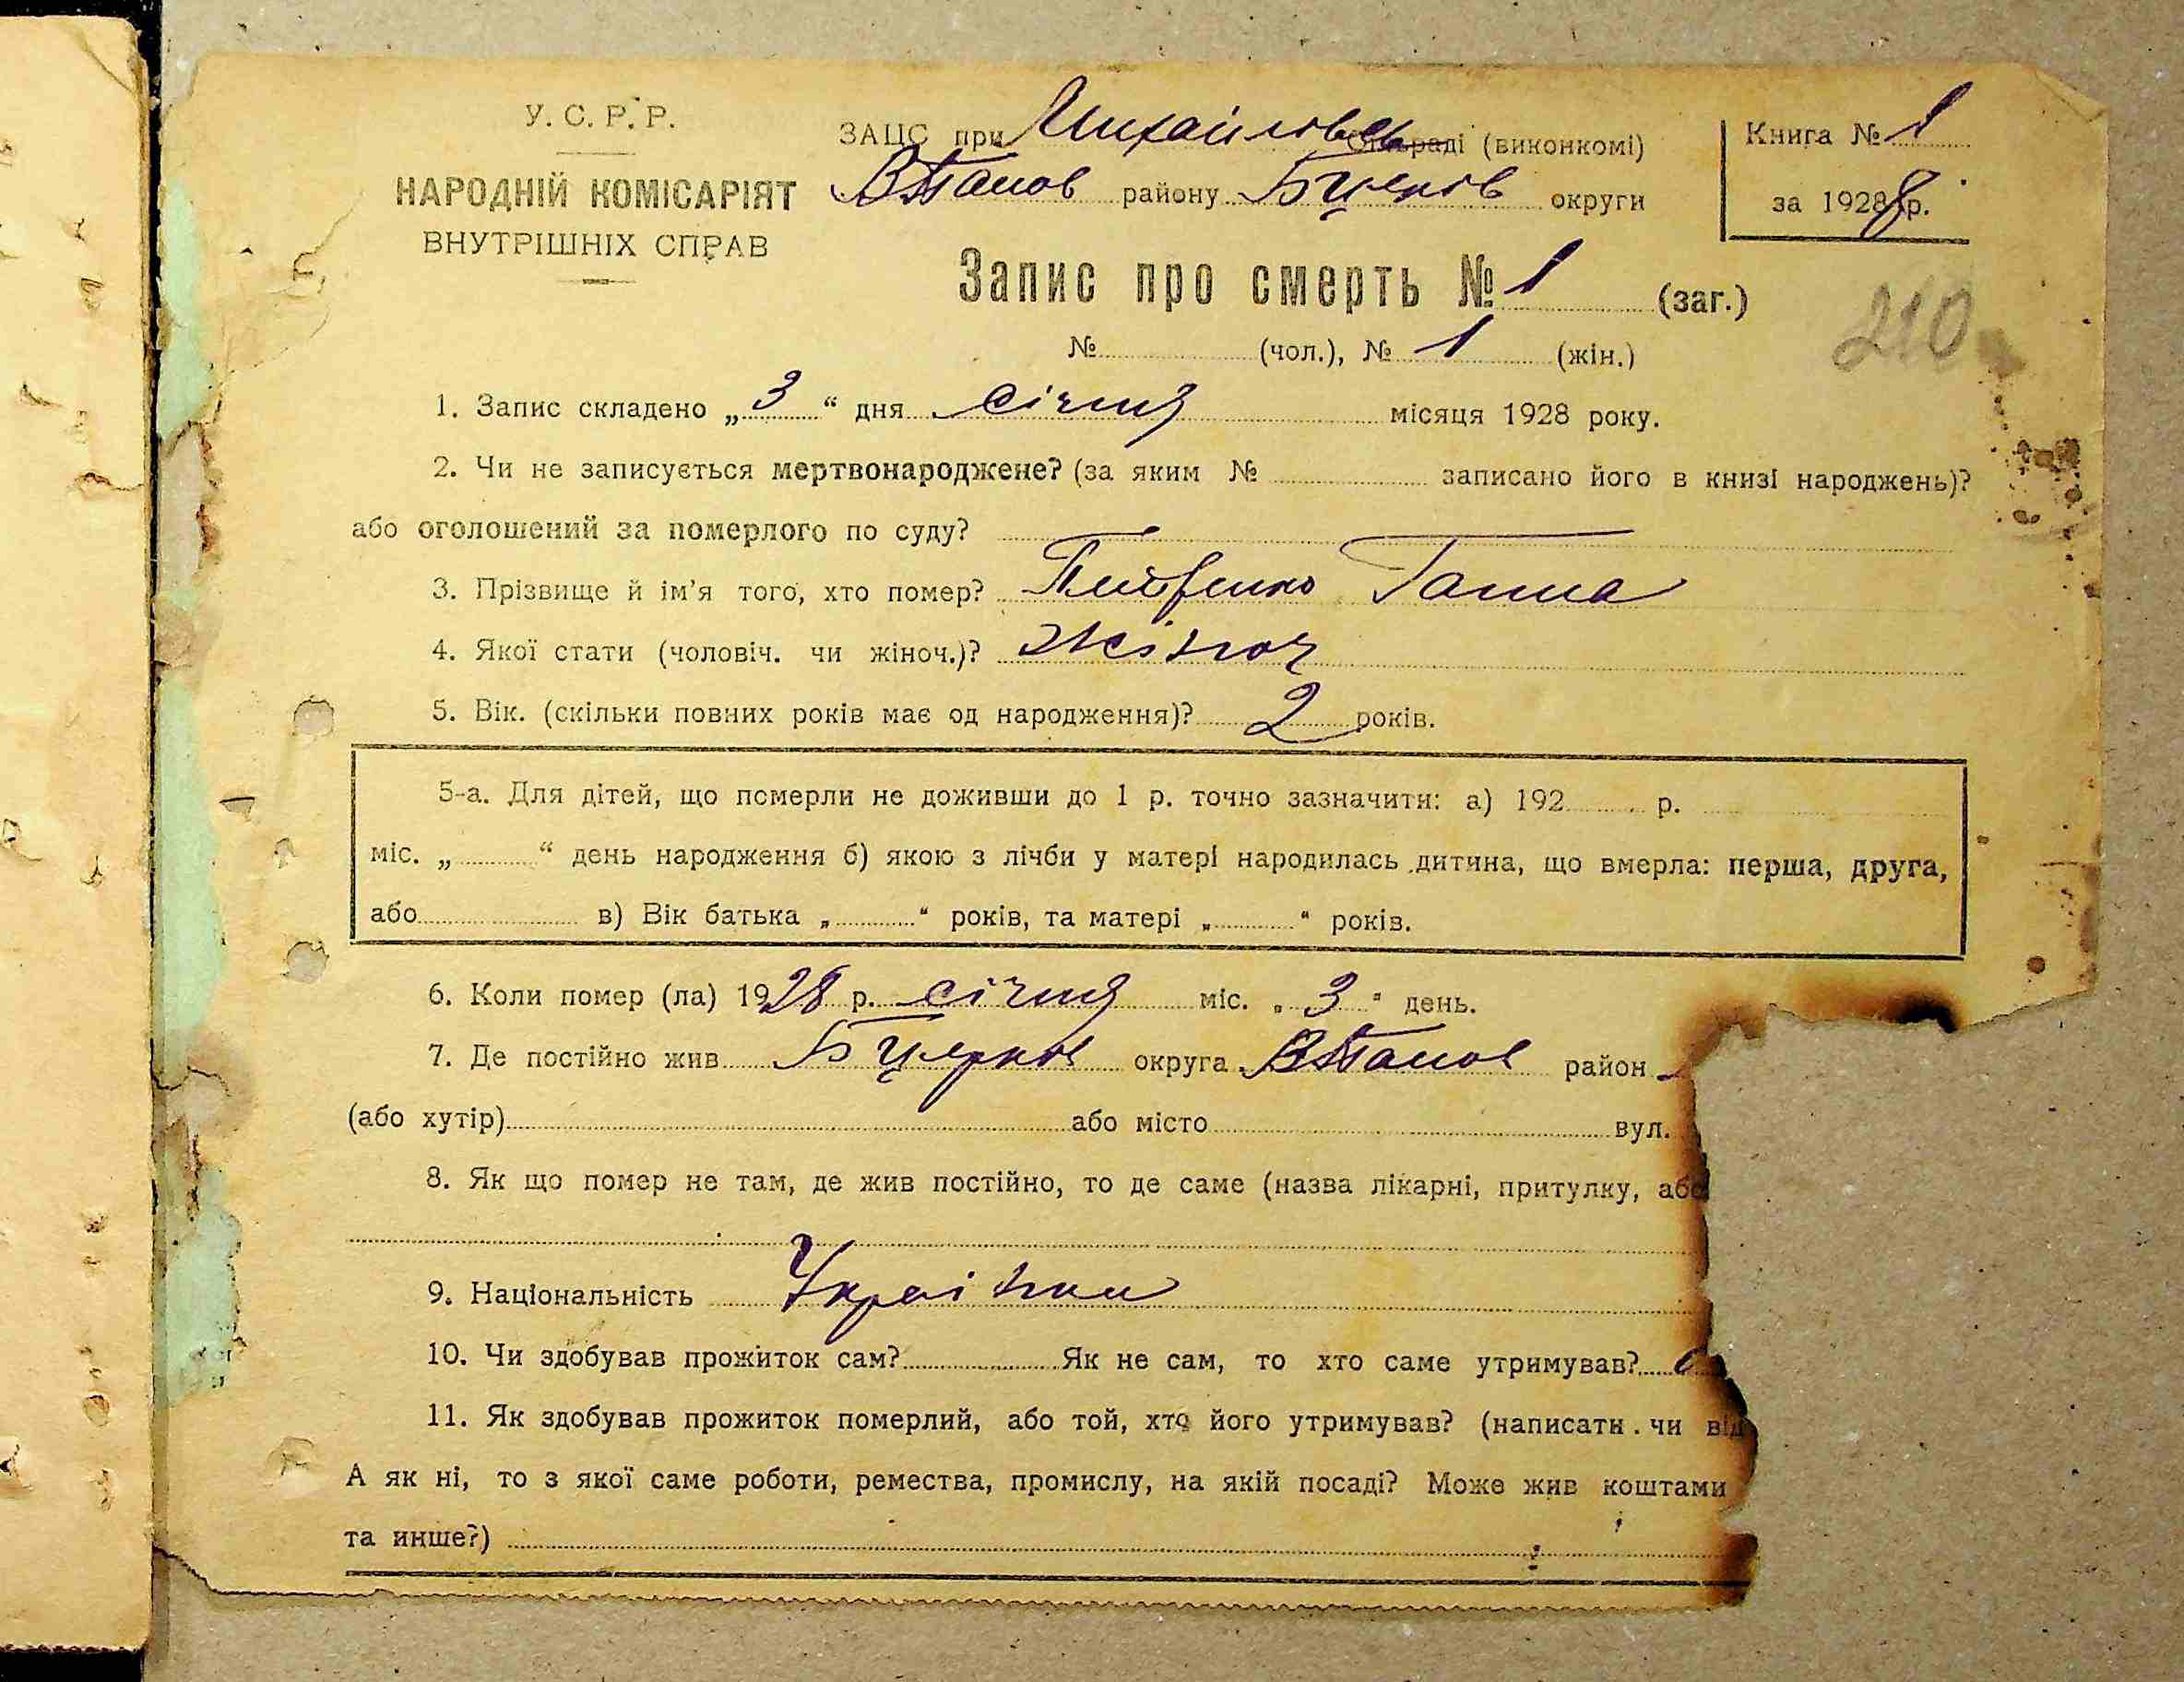 У. С. Р. Р.
НАРОДНІЙ КОМІСАРІЯТ
ВНУТРІШНІХ СПРАВ
ЗАЦС при Михайловсь сільраді (виконкомі)
району Бцерків округи
Книга № 1
за 1928 р.
Запис про смерть № 1 (заг.)
210
№ (чол.), № 1 (жін.)
1. Запис складено „ 3 “ дня січня місяця 1928 року.
2. Чи не записується мертвонароджене? (за яким № записано його в книзі народжень)?
або оголошений за померлого по суду?
3. Прізвище й ім’я того, хто помер? Ганна
4. Якої стати (чоловіч. чи жіноч.)? жіноч
5. Вік. (скільки повних років має од народження)? 2 років.
5-а. Для дітей, що померли не доживши до 1 р. точно зазначити: а) 192 р.
міс. „ “ день народження б) якою з лічби у матері народилась дитина, що вмерла: перша, друга,
або в) Вік батька „ “ років, та матері „ “ років.
6. Коли помер (ла) 1928 р. січня міс. „ 3 “ день.
7. Де постійно жив Бцерков округа район
(або хутір) або місто вул.
8. Як що помер не там, де жив постійно, то де саме (назва лікарні, притулку, або
9. Національність Українка
10. Чи здобував прожиток сам? Як не сам, то хто саме утримував?
11. Як здобував прожиток померлий, або той, хто його утримував? (написати чи від
А як ні, то з якої саме роботи, ремества, промислу, на якій посаді? Може жив коштами
та инше?)